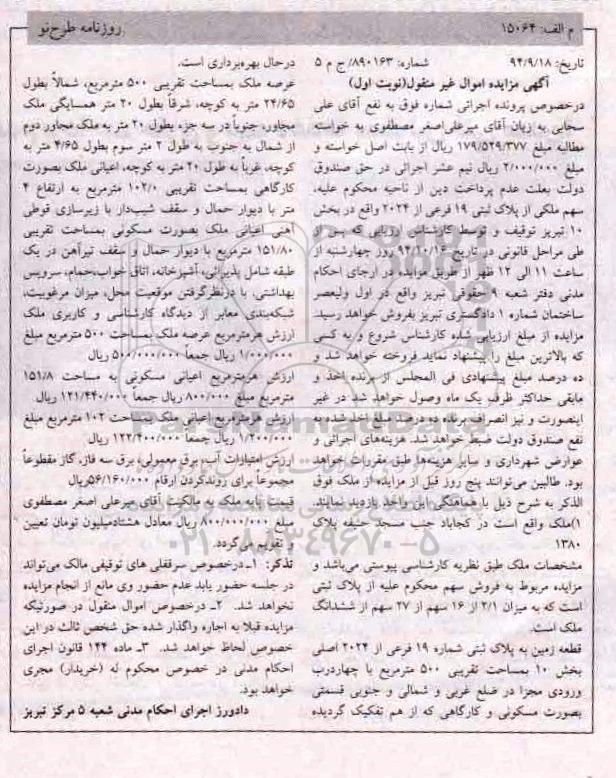 م الف: ۱۵۰۶۴
روزنامه طرح‌نو
تاریخ: ۹۴/۹/۱۸ شماره: ۸۹۰۱۶۳/ ج م ۵
آگهی مزایده اموال غیر منقول(نوبت اول)
درخصوص پرونده اجرائی شماره فوق به نفع آقای علی
سحابی به زیان آقای میرعلی‌اصغر مصطفوی به خواسته
مطالبه مبلغ ۱۷۹/۵۲۹/۳۷۷ ریال از بابت اصل خواسته و
مبلغ ۲/۰۰۰/۰۰۰ ریال نیم عشر اجرائی در حق صندوق
دولت بعلت عدم پرداخت دین از ناحیه محکوم علیه،
سهم ملکی از پلاک ثبتی ۱۹ فرعی از ۲۰۲۴ واقع در بخش
۱۰ تبریز توقیف و توسط کارشناس ارزیابی که پس از
طی مراحل قانونی در تاریخ ۹۴/۱۰/۱۶ روز چهارشنبه از
ساعت ۱۱ الی ۱۲ ظهر از طریق مزایده در اجرای احکام
مدنی دفتر شعبه ۹ حقوقی تبریز واقع در اول ولیعصر
ساختمان شماره ۱ دادگستری تبریز بفروش خواهد رسید.
مزایده از مبلغ ارزیابی شده کارشناس شروع و به کسی
که بالاترین مبلغ را پیشنهاد نماید فروخته خواهد شد و
ده درصد مبلغ پیشنهادی فی المجلس از برنده اخذ و
مابقی حداکثر ظرف یک ماه وصول خواهد شد در غیر
اینصورت و نیز انصراف برنده ده درصد مبلغ اخذ شده به
نفع صندوق دولت ضبط خواهد شد. هزینه‌های اجرائی و
عوارض شهرداری و سایر هزینه‌ها طبق مقررات خواهد
بود. طالبین می‌توانند پنج روز قبل از مزایده از ملک فوق
الذکر به شرح ذیل با هماهنگی این واحد بازدید نمایند.
۱)ملک واقع است در کجاباد جنب مسجد حنیفه پلاک
۱۳۸۰
مشخصات ملک طبق نظریه کارشناسی پیوستی می‌باشد و
مزایده مربوط به فروش سهم محکوم علیه از پلاک ثبتی
است که به میزان ۲/۱ از ۱۶ سهم از ۲۷ سهم از ششدانگ
ملک است.
قطعه زمین به پلاک ثبتی شماره ۱۹ فرعی از ۲۰۲۴ اصلی
بخش ۱۰ بمساحت تقریبی ۵۰۰ مترمربع با چهاردرب
ورودی مجزا در ضلع غربی و شمالی و جنوبی قسمتی
بصورت مسکونی و کارگاهی که از هم تفکیک گردیده
درحال بهره‌برداری است.
عرصه ملک بمساحت تقریبی ۵۰۰ مترمربع، شمالاً بطول
۲۴/۶۵ متر به کوچه، شرقاً بطول ۲۰ متر همسایگی ملک
مجاور، جنوباً در سه جزء بطول ۲۰ متر به ملک مجاور دوم
از شمال به جنوب به طول ۲ متر سوم بطول ۴/۶۵ متر به
کوچه، غرباً به طول ۲۰ متر به کوچه، اعیانی ملک بصورت
کارگاهی بمساحت تقریبی ۱۰۲/۰ مترمربع به ارتفاع ۴
متر با دیوار حمال و سقف شیب‌دار با زیرسازی قوطی
آهنی اعیانی ملک بصورت مسکونی بمساحت تقریبی
۱۵۱/۸۰ مترمربع با دیوار حمال و سقف تیرآهن در یک
طبقه شامل پذیرائی، آشپزخانه، اتاق خواب،حمام، سرویس
بهداشتی، با درنظرگرفتن موقعیت محل، میزان مرغوبیت،
شبکه‌بندی معابر از دیدگاه کارشناسی و کاربری ملک
ارزش هرمترمربع عرصه ملک بمساحت ۵۰۰ مترمربع مبلغ
۱/۰۰۰/۰۰۰ ریال جمعاً ۵۰۰/۰۰۰/۰۰۰ ریال
ارزش هرمترمربع اعیانی مسکونی به مساحت ۱۵۱/۸
مترمربع مبلغ ۸۰۰/۰۰۰ ریال جمعاً ۱۲۱/۴۴۰/۰۰۰ ریال
ارزش هرمترمربع اعیانی ملک به مساحت ۱۰۲ مترمربع مبلغ
۱/۲۰۰/۰۰۰ ریال جمعاً ۱۲۲/۴۰۰/۰۰۰ ریال
ارزش امتیازات آب، برق معمولی، برق سه فاز، گاز مقطوعاً
مجموعاً برای روندکردن ارقام ۵۶/۱۶۰/۰۰۰ریال
قیمت پایه ملک به مالکیت آقای میرعلی اصغر مصطفوی
مبلغ ۸۰۰/۰۰۰/۰۰۰ ریال معادل هشتادمیلیون تومان تعیین
و تقدیم‌می‌گردد.
تذکر: ۱ـ درخصوص سرقفلی های توقیفی مالک می‌تواند
در جلسه حضور یابد عدم حضور وی مانع از انجام مزایده
نخواهد شد. ۲ـ درخصوص اموال منقول در صورتیکه
مزایده قبلا به اجاره واگذار شده حق شخص ثالث در این
خصوص لحاظ خواهد شد. ۳ـ ماده ۱۴۴ قانون اجرای
احکام مدنی در خصوص محکوم له (خریدار) مجری
خواهد بود.
دادورز اجرای احکام مدنی شعبه ۵ مرکز تبریز
ParsNamadData
۰۲۱-۸۸۳۴۹۶۷۰-۵